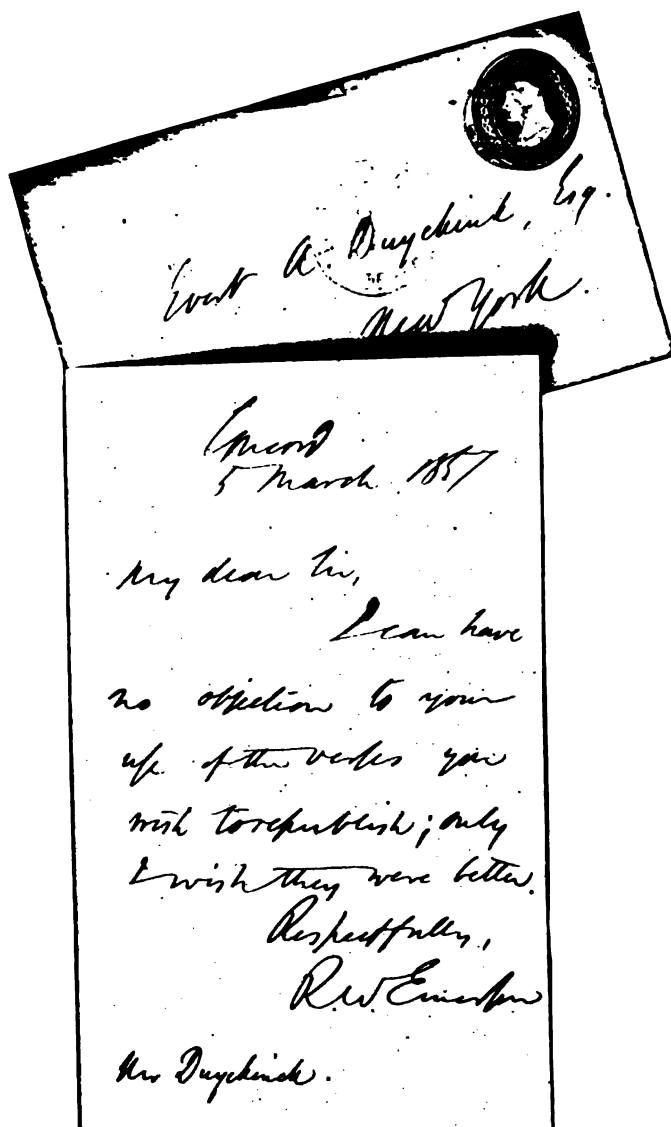 Evert A. Duyckinck, Esq.
New York.
Concord
5 March 1857
My dear Sir,
I can have
no objection to your
use of the verses you
wish to republish; only
I wish they were better.
Respectfully,
R.W. Emerson
Mr Duyckinck.